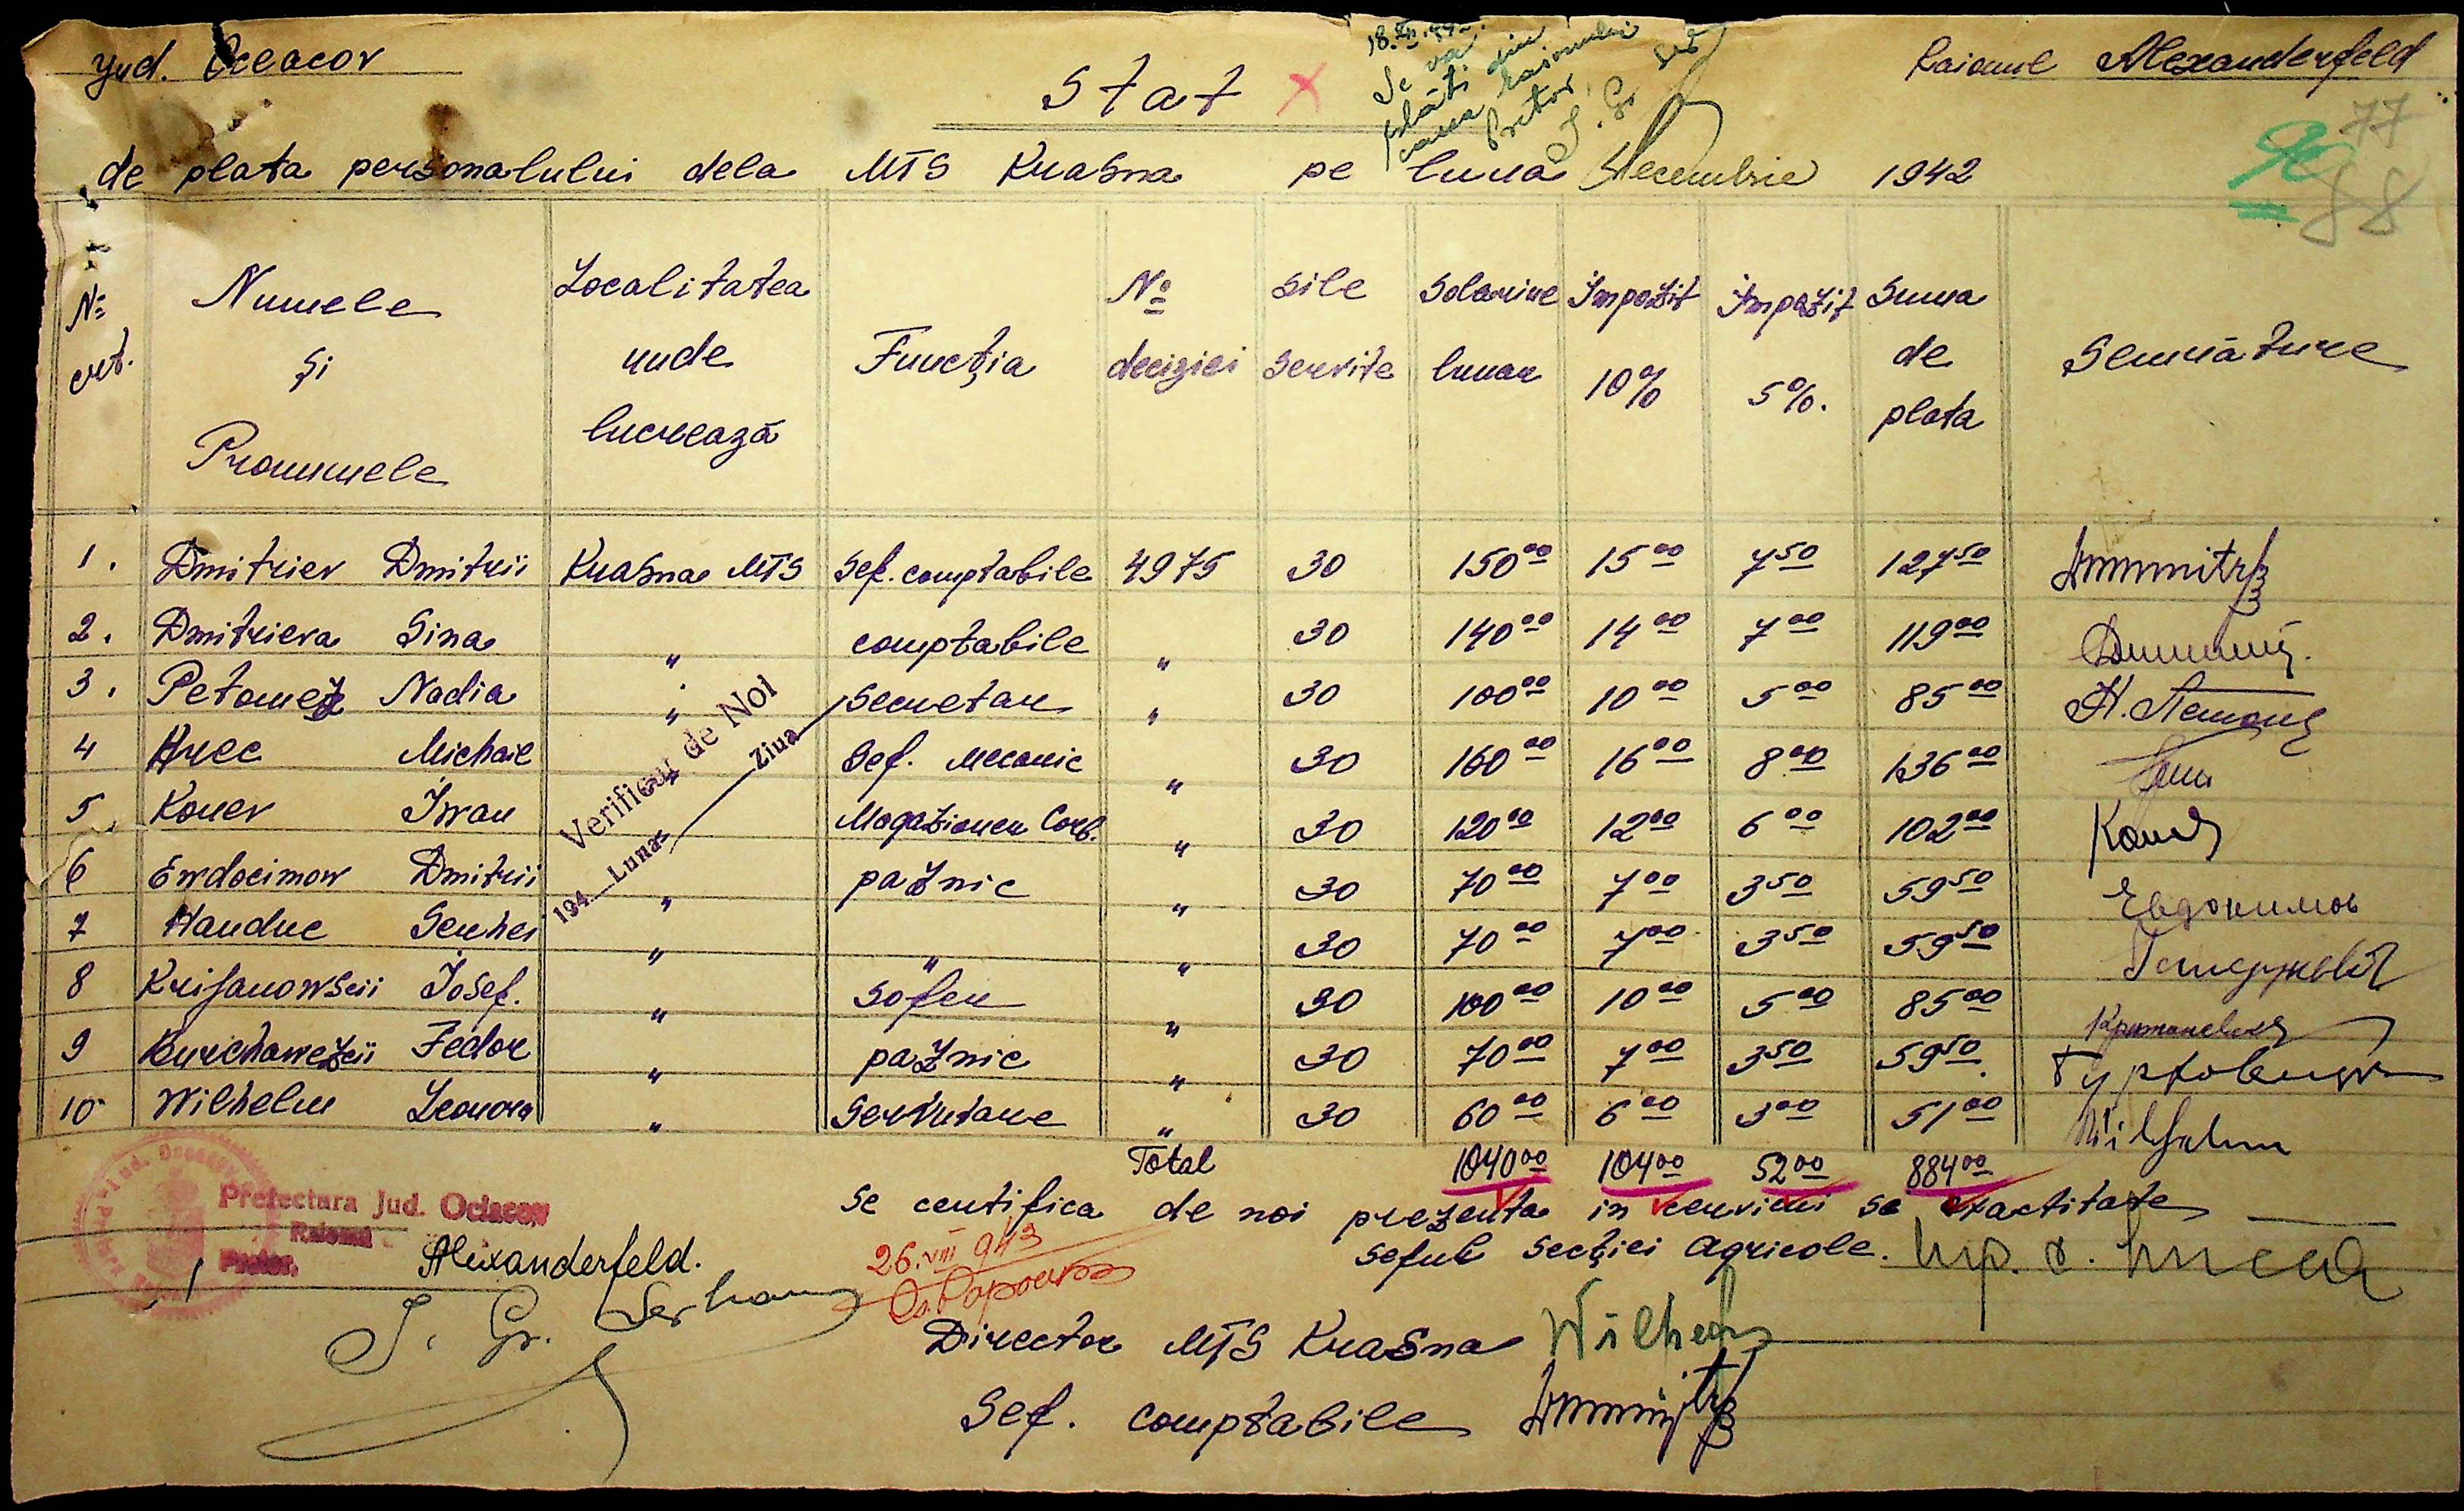 Jud. Oceacov
Raionul Alexanderfeld
18.XII.942.
Se va
plăti din
casa raionului
Pretor,
Stat
77
88
de plata personalului dela MTS Krasna pe luna Decembrie 1942
№ crt. Numele și Pronumele Localitatea unde lucrează Funcția № deciziei sile servite Solariue lunar Impozit 10% Impozit 5%. Suma de plata Semnăture
1. Dmitriev Dmitrii Krasna MTS Sef. comptabile 4975 30 150 00 15 00 7 50 127 50
2. Dmitrieva Sina " comptabile " 30 140 00 14 00 7 00 119 00
3. Petometz Nadia " Secretar " 30 100 00 10 00 5 00 85 00
4 Hrec Michail " Sef. Mecanic " 30 160 00 16 00 8 00 136 00
5 Konev Iwan " Magazioner Carb. " 30 120 00 12 00 6 00 102 00
6 Ewdocimow Dmitrii " paznic " 30 70 00 7 00 3 50 59 50 Евдокимов
7 Handuc Serhei " " " 30 70 00 7 00 3 50 59 50
8 Krijanowscii Josef. " Sofer " 30 100 00 10 00 5 00 85 00
9 Burchowetzcii Fedor " paznic " 30 70 00 7 00 3 50 59 50
10 Wilhelm Leonora " Servitare " 30 60 00 6 00 3 00 51 00 Wilhelm
Verificat de Noi
194 Luna Ziua
Total 1040 00 104 00 52 00 884 00
Se certifica de noi prezenta in servicii si exactitate
Prefectura Jud. Oceacov
Raionul
Alexanderfeld.
Pretor.
26.VIII 943
Seful Secției Agricole.
Director MTS Krasna Wilhelm
Sef. comptabile